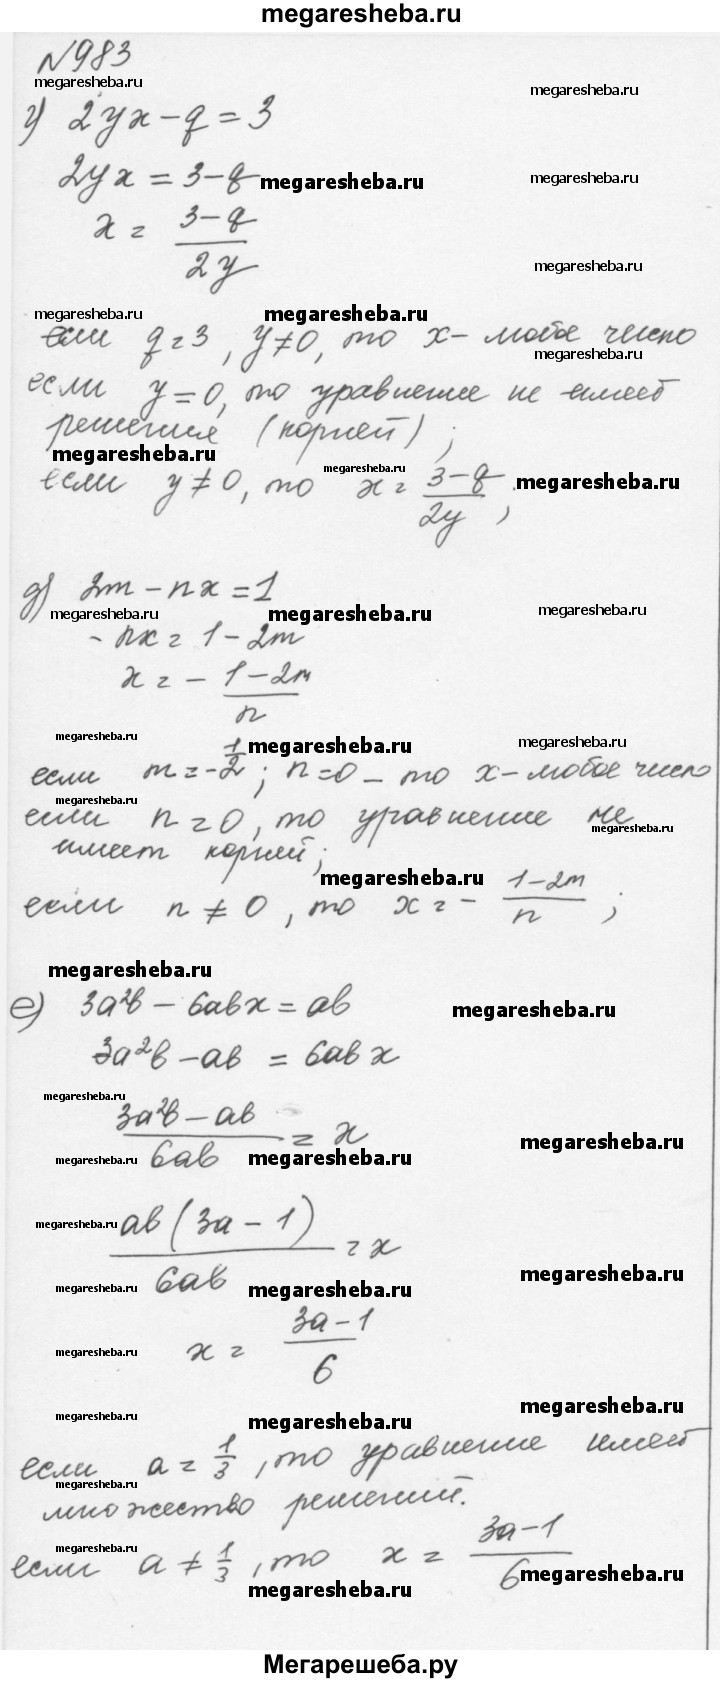 megaresheba.ru
№983
megaresheba.ru megaresheba.ru
г) 2yx - q = 3
2yx = 3-q megaresheba.ru megaresheba.ru
x = (3-q)/(2y)
megaresheba.ru
megaresheba.ru megaresheba.ru
если q = 3, y ≠ 0, то x - любое число
megaresheba.ru
если y = 0, то уравнение не имеет
решения (корней);
megaresheba.ru megaresheba.ru
если y ≠ 0, то x = (3-q)/(2y); megaresheba.ru
д) 2m - nx = 1
megaresheba.ru megaresheba.ru megaresheba.ru
- nx = 1 - 2m
x = - (1-2m)/n
megaresheba.ru megaresheba.ru megaresheba.ru
если m = -1/2; n = 0 - то x - любое число
megaresheba.ru
если n = 0, то уравнение не
megaresheba.ru
имеет корней;
megaresheba.ru
если n ≠ 0, то x = - (1-2m)/n;
megaresheba.ru
е) 3a²b - 6abx = ab megaresheba.ru
3a²b - ab = 6abx
megaresheba.ru
(3a²b - ab)/(6ab) = x megaresheba.ru
megaresheba.ru megaresheba.ru
megaresheba.ru
(ab(3a - 1))/(6ab) = x
megaresheba.ru megaresheba.ru megaresheba.ru
x = (3a-1)/6
megaresheba.ru megaresheba.ru
megaresheba.ru megaresheba.ru megaresheba.ru
если a = 1/3, то уравнение имеет
megaresheba.ru
множество решений.
megaresheba.ru
если a ≠ 1/3, то x = (3a-1)/6
megaresheba.ru megaresheba.ru
Мегарешеба.ру